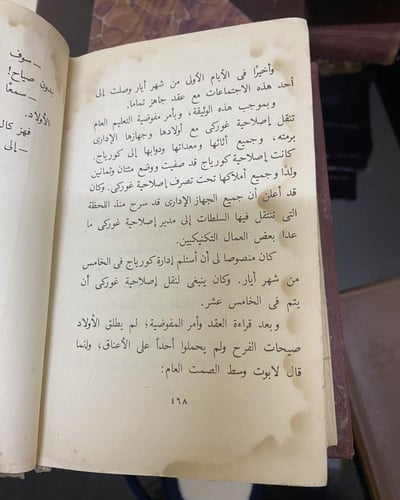 وأخيرًا في الأيام الأولى من شهر أيار وصلت إلى
أحد هذه الاجتماعات مع عقد جاهز تماما.
وبموجب هذه الوثيقة، وبأمر مفوضية التعليم العام
تنتقل إصلاحية غوركى مع أولادها وجهازها الإدارى
برمته، وجميع أثاثها ومعداتها ودوابها إلى كورياج.
كانت إصلاحية كورياج قد صفيت ووضع مئتان وثمانين
ولدًا وجميع أملاكها تحت تصرف إصلاحية غوركى. وكان
قد أعلن أن جميع الجهاز الإدارى قد سرح منذ اللحظة
التى تنتقل فيها السلطات إلى مدير إصلاحية غوركى ما
عدا بعض العمال التكنيكيين.
كان منصوصا لى أن أستلم إدارة كورياج فى الخامس
من شهر أيار. وكان ينبغى لنقل إصلاحية غوركى أن
يتم فى الخامس عشر.
وبعد قراءة العقد وأمر المفوضية؛ لم يطلق الأولاد
صيحات الفرح ولم يحملوا أحدأ على الأعناق، وإنما
قال لابوت وسط الصمت العام:
٤٦٨
ـ سوف
بدون صياح!
ـ سمعًا
الأولاد.
فهز كال
ـ إلى